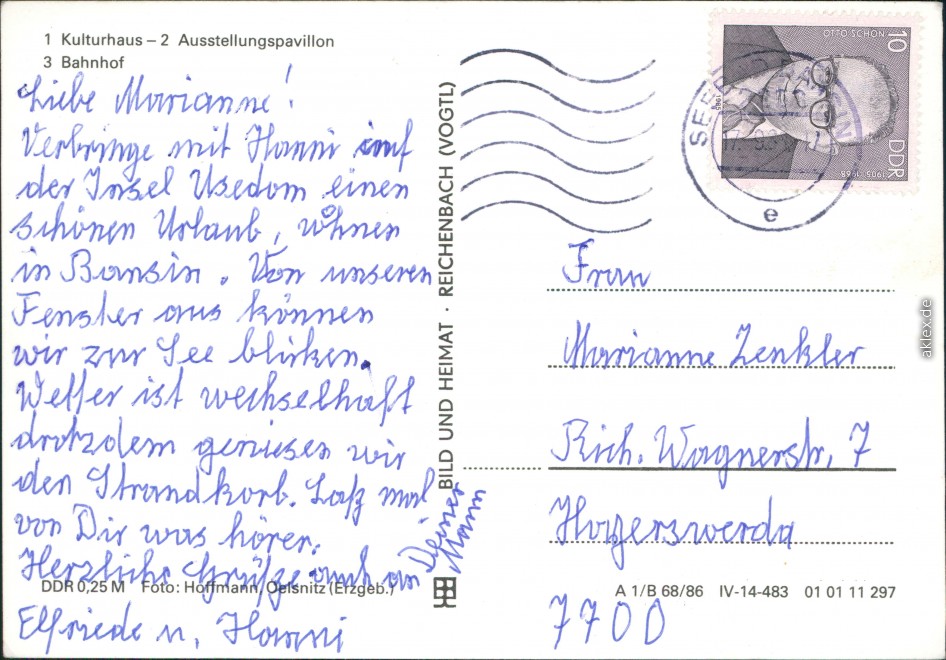 1 Kulturhaus – 2 Ausstellungspavillon
3 Bahnhof
Liebe Marianne!
Verbringe mit Hanni auf
der Insel Usedom einen
schönen Urlaub, wohnen
in Bansin. Von unseren
Fenster aus können
wir zur See blicken.
Wetter ist wechselhaft
drotzdem geniesen wir
den Strandkorb. Laß mal
von Dir was hören.
Herzliche Grüße auch an
Deinen
Mann
Elfriede u. Hanni
DDR 0,25 M Foto: Hoffmann, Oelsnitz (Erzgeb.)
BILD UND HEIMAT · REICHENBACH (VOGTL)
OTTO SCHÖN
10
DDR
1905-1968
SEEBAD BANSIN
e
Frau
Marianne Zenkler
Rich. Wagnerstr. 7
Hoyerswerda
7700
A 1/B 68/86 IV-14-483 01 01 11 297
aklex.de